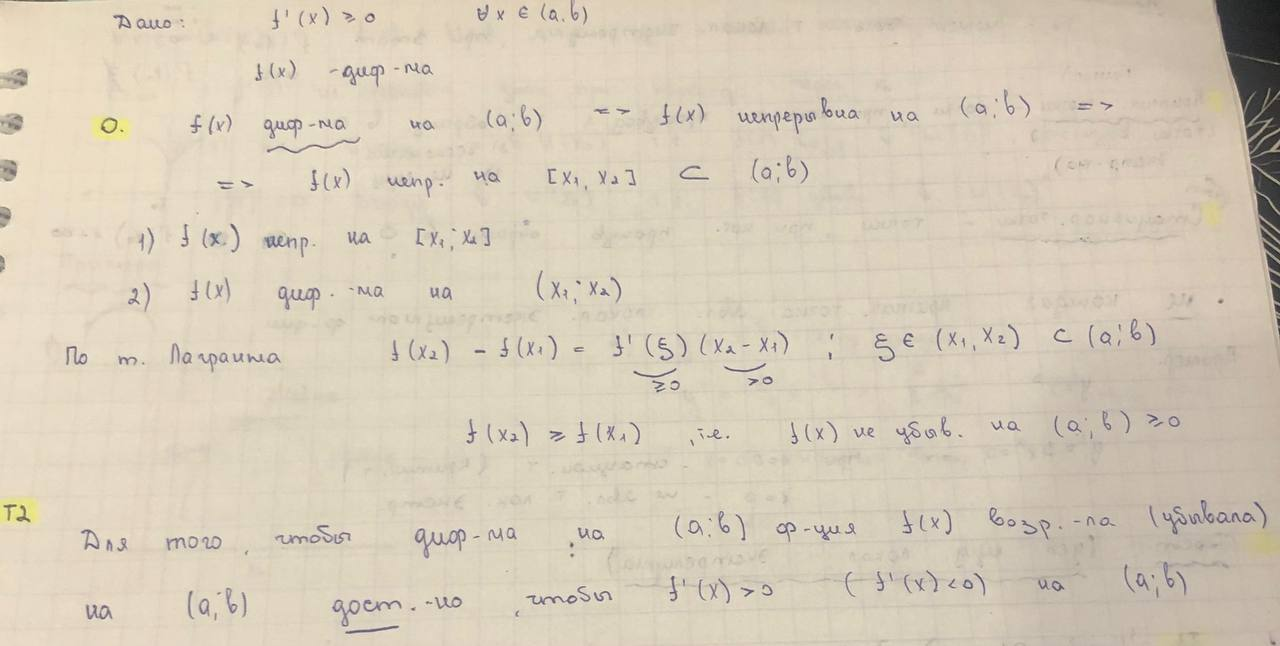 Дано: f'(x) ≥ 0 ∀ x ∈ (a,b)
f(x) - диф-ма
О. f(x) диф-ма на (a;b) => f(x) непрерывна на (a;b) =>
=> f(x) непр. на [x₁, x₂] ⊂ (a;b)
1) f(x) непр. на [x₁; x₂]
2) f(x) диф.-ма на (x₁; x₂)
По т. Лагранжа f(x₂) - f(x₁) = f'(ξ) (x₂ - x₁) ; ξ ∈ (x₁, x₂) ⊂ (a;b)
≥0 >0
f(x₂) ≥ f(x₁) ,т.е. f(x) не убыв. на (a;b) ≥0
Т2 Для того, чтобы диф-ма на (a;b) ф-ция f(x) возр.-ла (убывала)
на (a;b) дост.-но, чтобы f'(x) > 0 (f'(x) < 0) на (a;b)